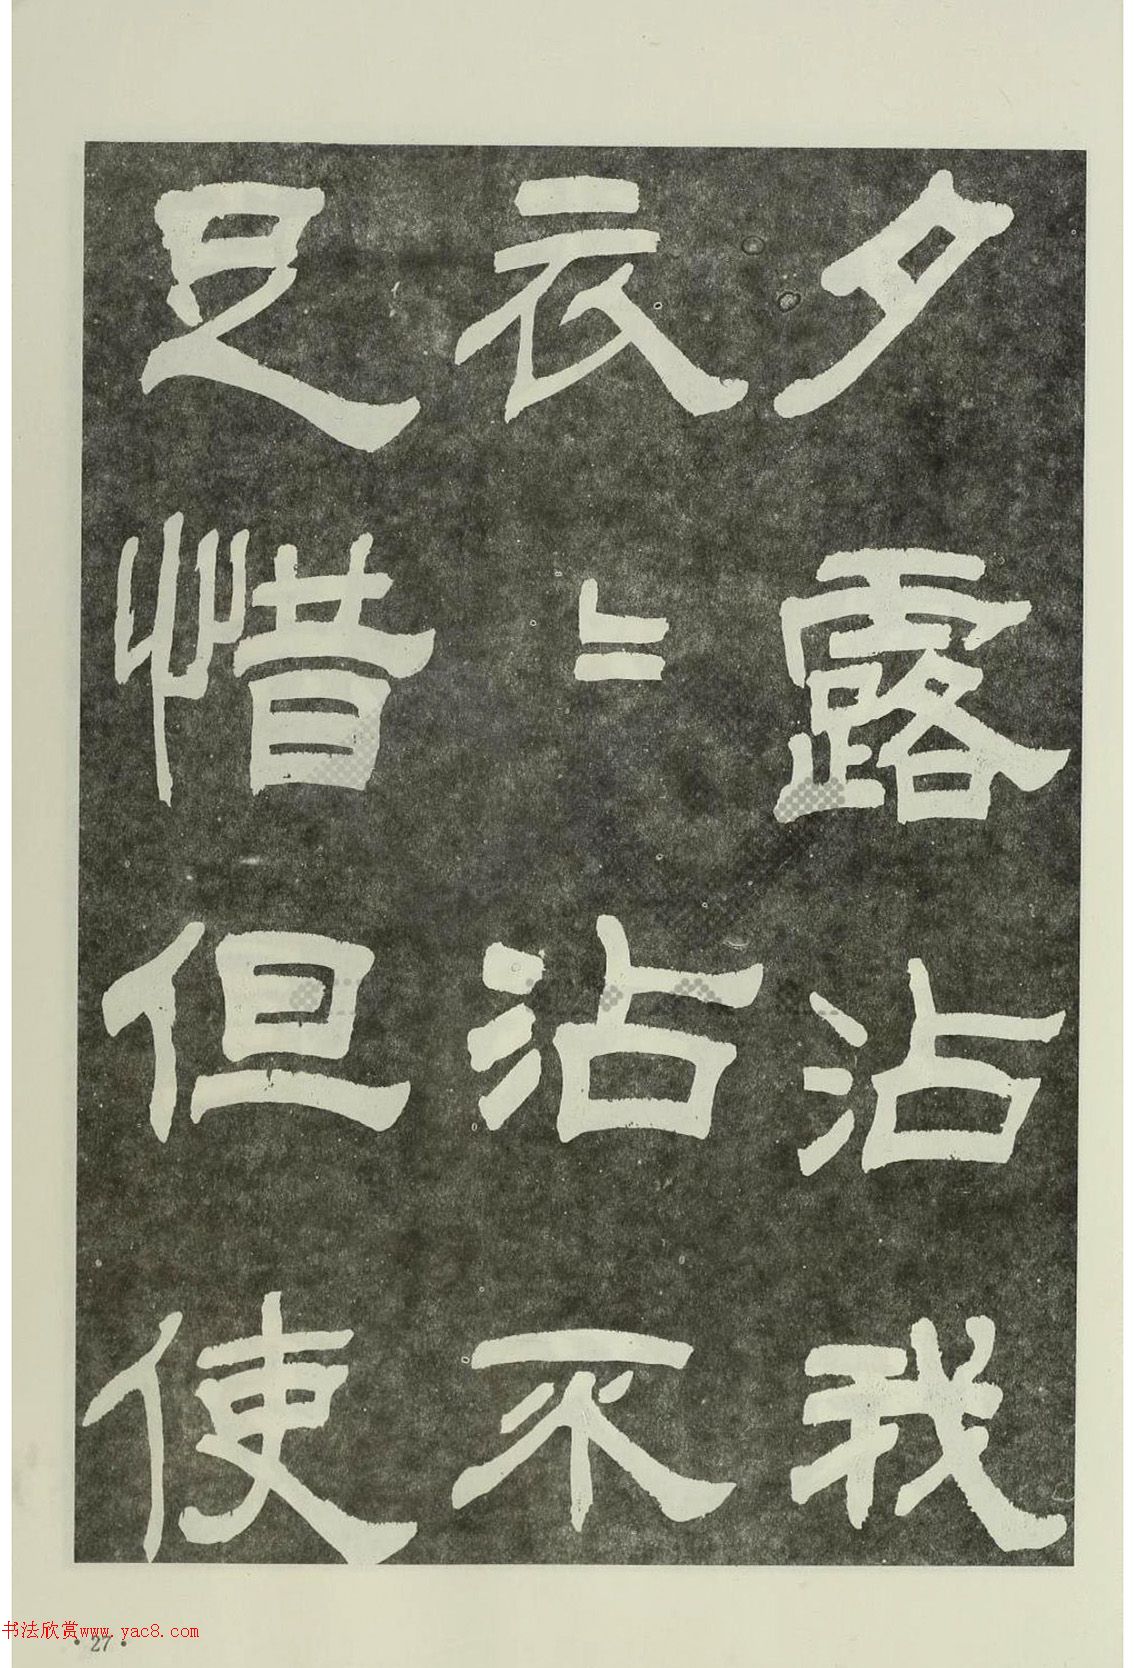 夕露沾我
衣〻沾不
足惜但使
书法欣赏www.yac8.com
·27·